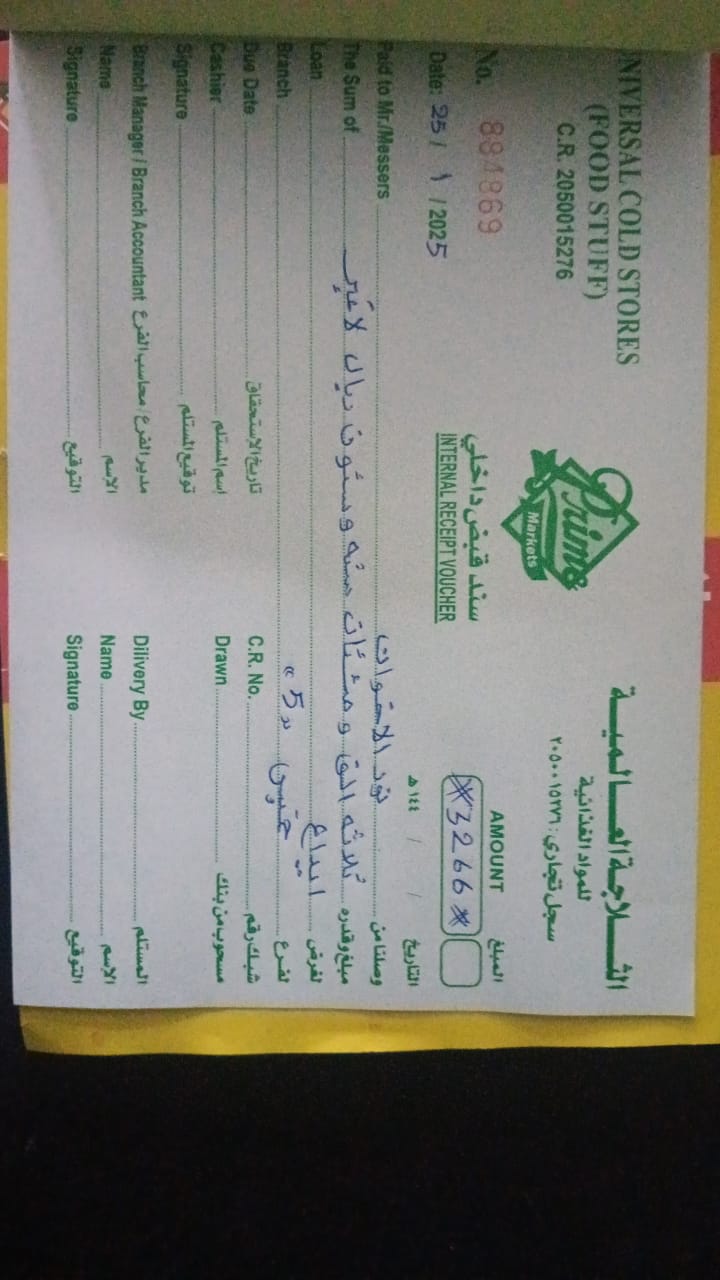 UNIVERSAL COLD STORES
(FOOD STUFF)
C.R. 2050015276
Prime
Markets
الثلاجة العالمية
للمواد الغذائية
سجل تجاري : ٢٠٥٠٠١٥٢٧٦
No. 884869
سند قبض داخلي
INTERNAL RECEIPT VOUCHER
AMOUNT المبلغ
*3266*
Date: 25 / 1 / 2025
التاريخ / / ١٤٤ هـ
Paid to Mr./Messers وصلنا من
The Sum of ثلاثه الف و مئتان سته وستون ريال لا غير مبلغ وقدره
Loan ايداع لغرض
Branch "5" لفرع
Due Date تاريخ الاستحقاق C.R. No. شيك رقم
Cashier اسم المستلم Drawn مسحوب من بنك
Signature توقيع المستلم
Branch Manager / Branch Accountant مدير الفرع / محاسب الفرع Dilivery By المستلم
Name الاسم Name الاسم
Signature التوقيع Signature التوقيع